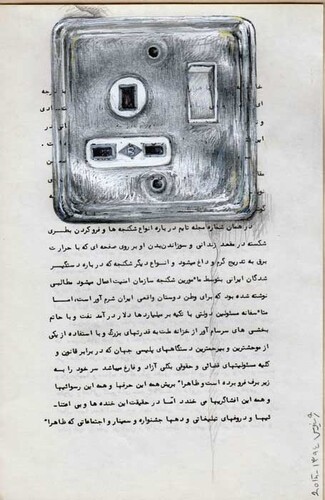 در همان شماره مجله تایم در باره انواع شکنجه ها و فرو کردن بطری
شکسته در مقعد زندانی و سوزاندن بدن او بر روی صفحه ای که با حرارت
برق به تدریج گرم و داغ میشود و انواع دیگر شکنجه که در باره دستگیر
شدگان ایرانی بتوسط مأمورین شکنجه سازمان امنیت اعمال میشود مطالبی
نوشته شده بود که برای وطن دوستان واقعی ایران شرم آور است، امـا
متأسفانه مسئولین دولتی با تکیه بر میلیارد ها دلار در آمد نفت و با حاتم
بخشی های سرسام آور از خزانه ملت به قدرتهای بزرگ و با استفاده از یکی
از موحشترین و بیرحمترین دستگاههای پلیسی جهان که در برابر قانون و
کلیه مسئولیتهای قضائی و حقوقی بکلی آزاد و فارغ میباشد سر خود را بـه
زیر برف فرو برده است و ظاهرا" بریش همه این حرفها و همه این رسوائیها
و همه این افشاگریها می خندد امّا در حقیقت این خنده ها و بی اعتنـا
ئیها و دروغهای تبلیغاتی و دهها جشنواره و سمینار و اجتماعاتی که ظاهرا"